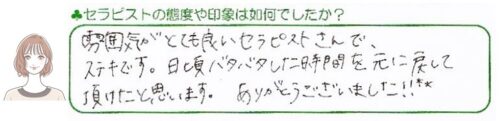 ♣セラピストの態度や印象は如何でしたか?
雰囲気がとても良いセラピストさんで、
ステキです。日頃バタバタした時間を元に戻して
頂けたと思います。 ありがとうございました!!**